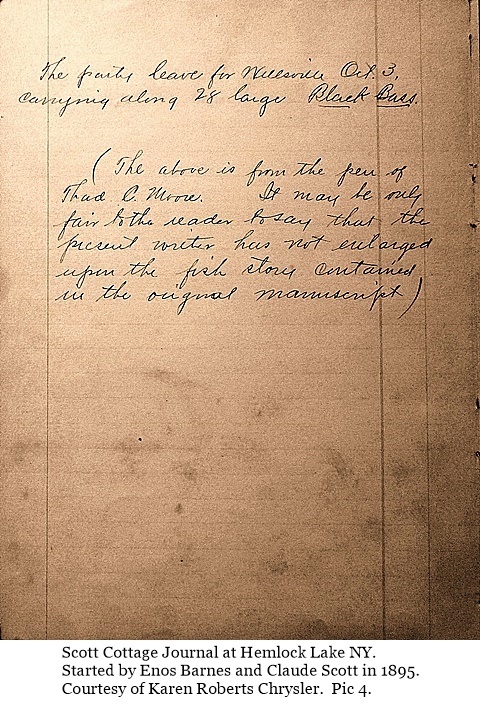 The party leave for Wellsville Oct. 3,
carrying along 28 large Black Bass.
(The above is from the pen of
Thad C. Moore. It may be only
fair to the reader to say that the
present writer has not enlarged
upon the fish story contained
in the original manuscript)
Scott Cottage Journal at Hemlock Lake NY.
Started by Enos Barnes and Claude Scott in 1895.
Courtesy of Karen Roberts Chrysler.  Pic 4.